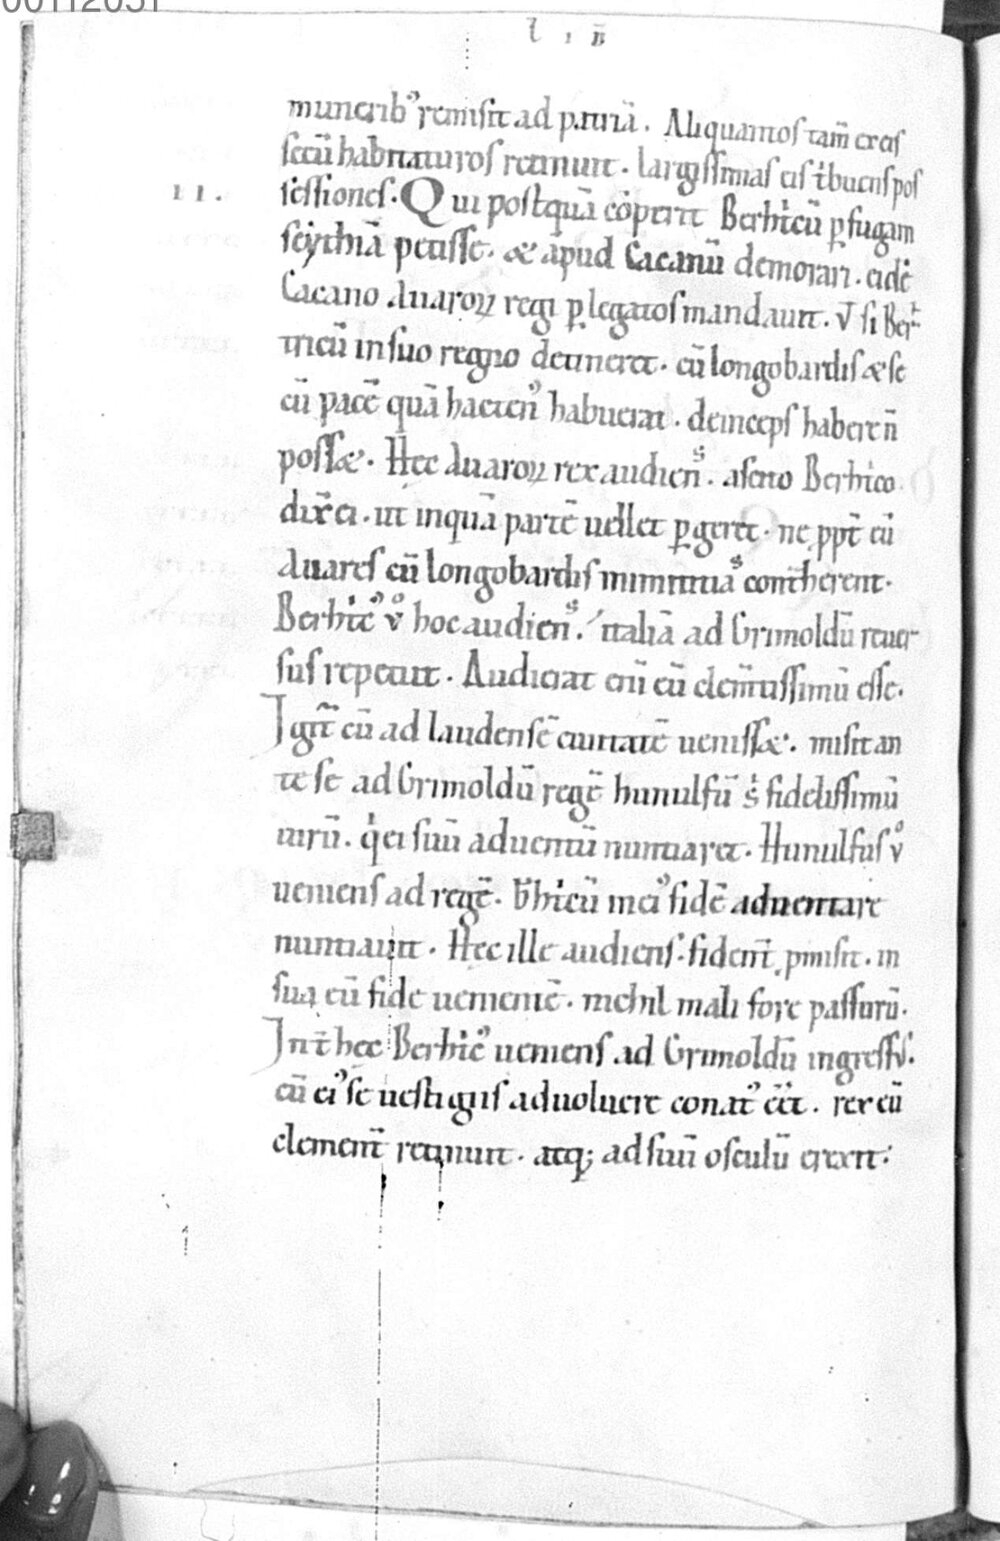 00112051
LIB̅
munerib᾿ remisit ad patriā. Aliquantos tam̅ ex eis
secū habitaturos retinuit. largissimas eis t͛buens pos
II.
sessiones. Qui postquā cōperit Berhtͥcū ꝑfugam
scythiā petisse. & apud Cacanū demorari. eidē
Cacano Auaroꝝ regi ꝑ legatos mandauit. ut̅ si Ber
tricū in suo regno detineret. cū longobardis & se
cū pacē quā hacten᾿ habuerat. deinceps habere n̅
possæ. Hec Auaroꝝ rex audiens. ascito Berhtͥco
dix̅ ei. ut in quā partē uellet ꝑgeret. ne ꝓpt̅ eū
Auares cū longobardis inimicitias cont͛herent.
Berhtͥc᾿ ů hoc audiens. italiā ad Grimoldū reuer
sus repetiit. Audierat eni̅ eū clem̅tissimū esse.
Igit̅ cū ad laudensē ciuitatē uenissæ. misit an
te se ad Grimoldū regē hunulfū sͥ fidelissimū
uirū. qͥ ei suū aduentū nuntiaret. Hunulfus ů
ueniens ad regē. b̅htͥcū in ei᾿ fidē aduentare
nuntiauit. Hec ille audiens. fident̅ ꝓmisit. in
sua eū fide uenientē. nichil mali fore passurū.
Int̅ hec Berhtͥc᾿ ueniens ad Grimoldū ingressus.
cū ei᾿ se uestigiis aduoluere conat᾿ ēēt. rex eū
clement̅ retinuit. atq; ad suū osculū erexit.